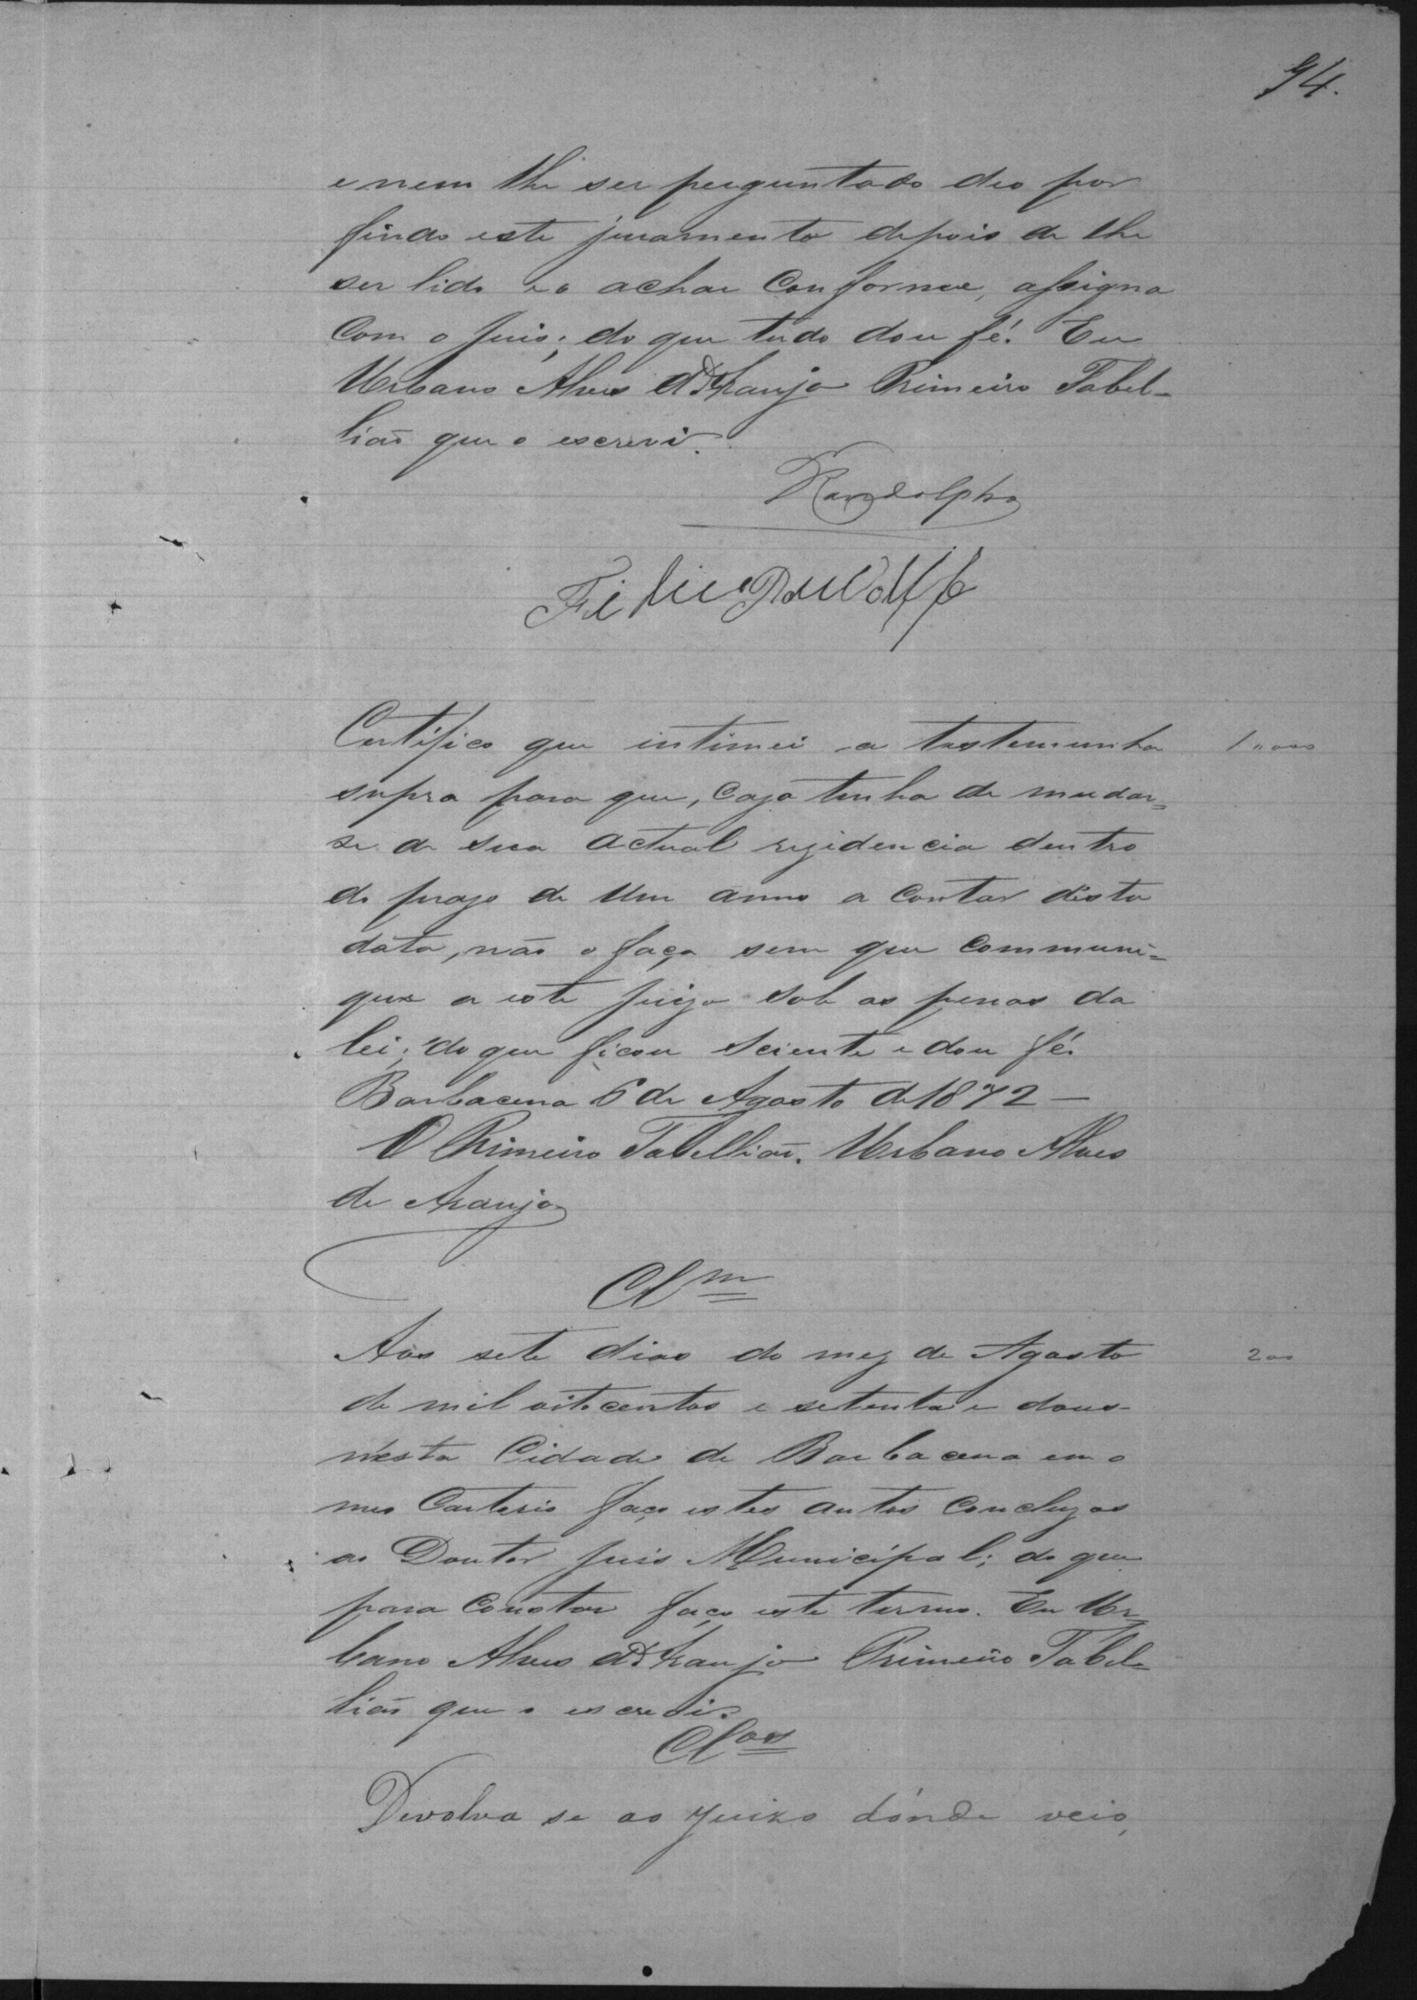 94.
e nem lhe ser perguntado deo por
findo este juramento depois de lhe
ser lido e o achar conforme, assigna
com o Juis; do que tudo dou fé. Eu
Urbano Alves de Araujo Primeiro Tabel-
lião que o escrevi.
Randolpho
Certifico que intimei a testemunha 1"000
supra para que, caso tenha de mudar=
se de sua actual rezidencia dentro
do praso de um anno a contar désta
dáta, não o faça sem que communi=
que a este Juizo sob as penas da
lei; do que ficou sciente e dou fé.
Barbacena 6 de Agosto de 1872 —
O Primeiro Tabellião. Urbano Alves
de Araujo
Clm
Aos sete dias do mez de Agosto 200
de mil oitocentos e setenta e dous
nésta Cidade de Barbacena em o
meo Cartorio faço estes autos concluzos
ao Doutor Juis Municipal; do que
para constar faço este termo. Eu Ur=
bano Alves de Araujo Primeiro Tabel=
lião que o escrevi.
Clos
Devolva se ao Juizo dónde veio,